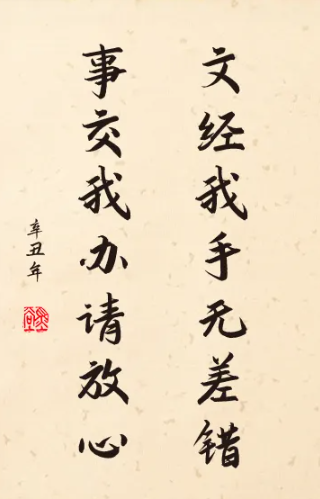 文经我手无差错
事交我办请放心
辛丑年